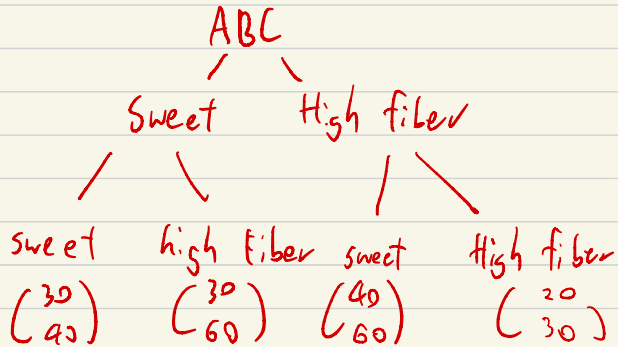 ABC
Sweet High fiber
sweet high fiber sweet High fiber
(30 (30 (40 (20
90) 60) 60) 30)